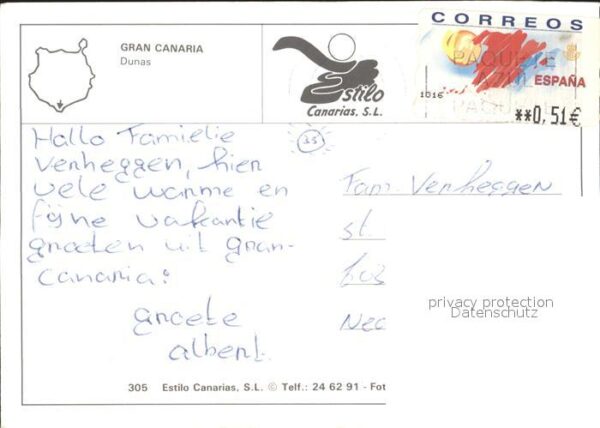 GRAN CANARIA
Dunas
Estilo
Canarias, S.L.
CORREOS
PAQUETE
AZUL
ESPAÑA
1016
PAQU
**0,51€
Hallo Famielie
Verheggen, hier
vele warme en
fijne vakantie
groeten uit Gran-
Canaria:
groete
albert.
33
Fam. Verheggen
st
Ned
privacy protection
Datenschutz
305 Estilo Canarias, S.L. © Telf.: 24 62 91 - Fot